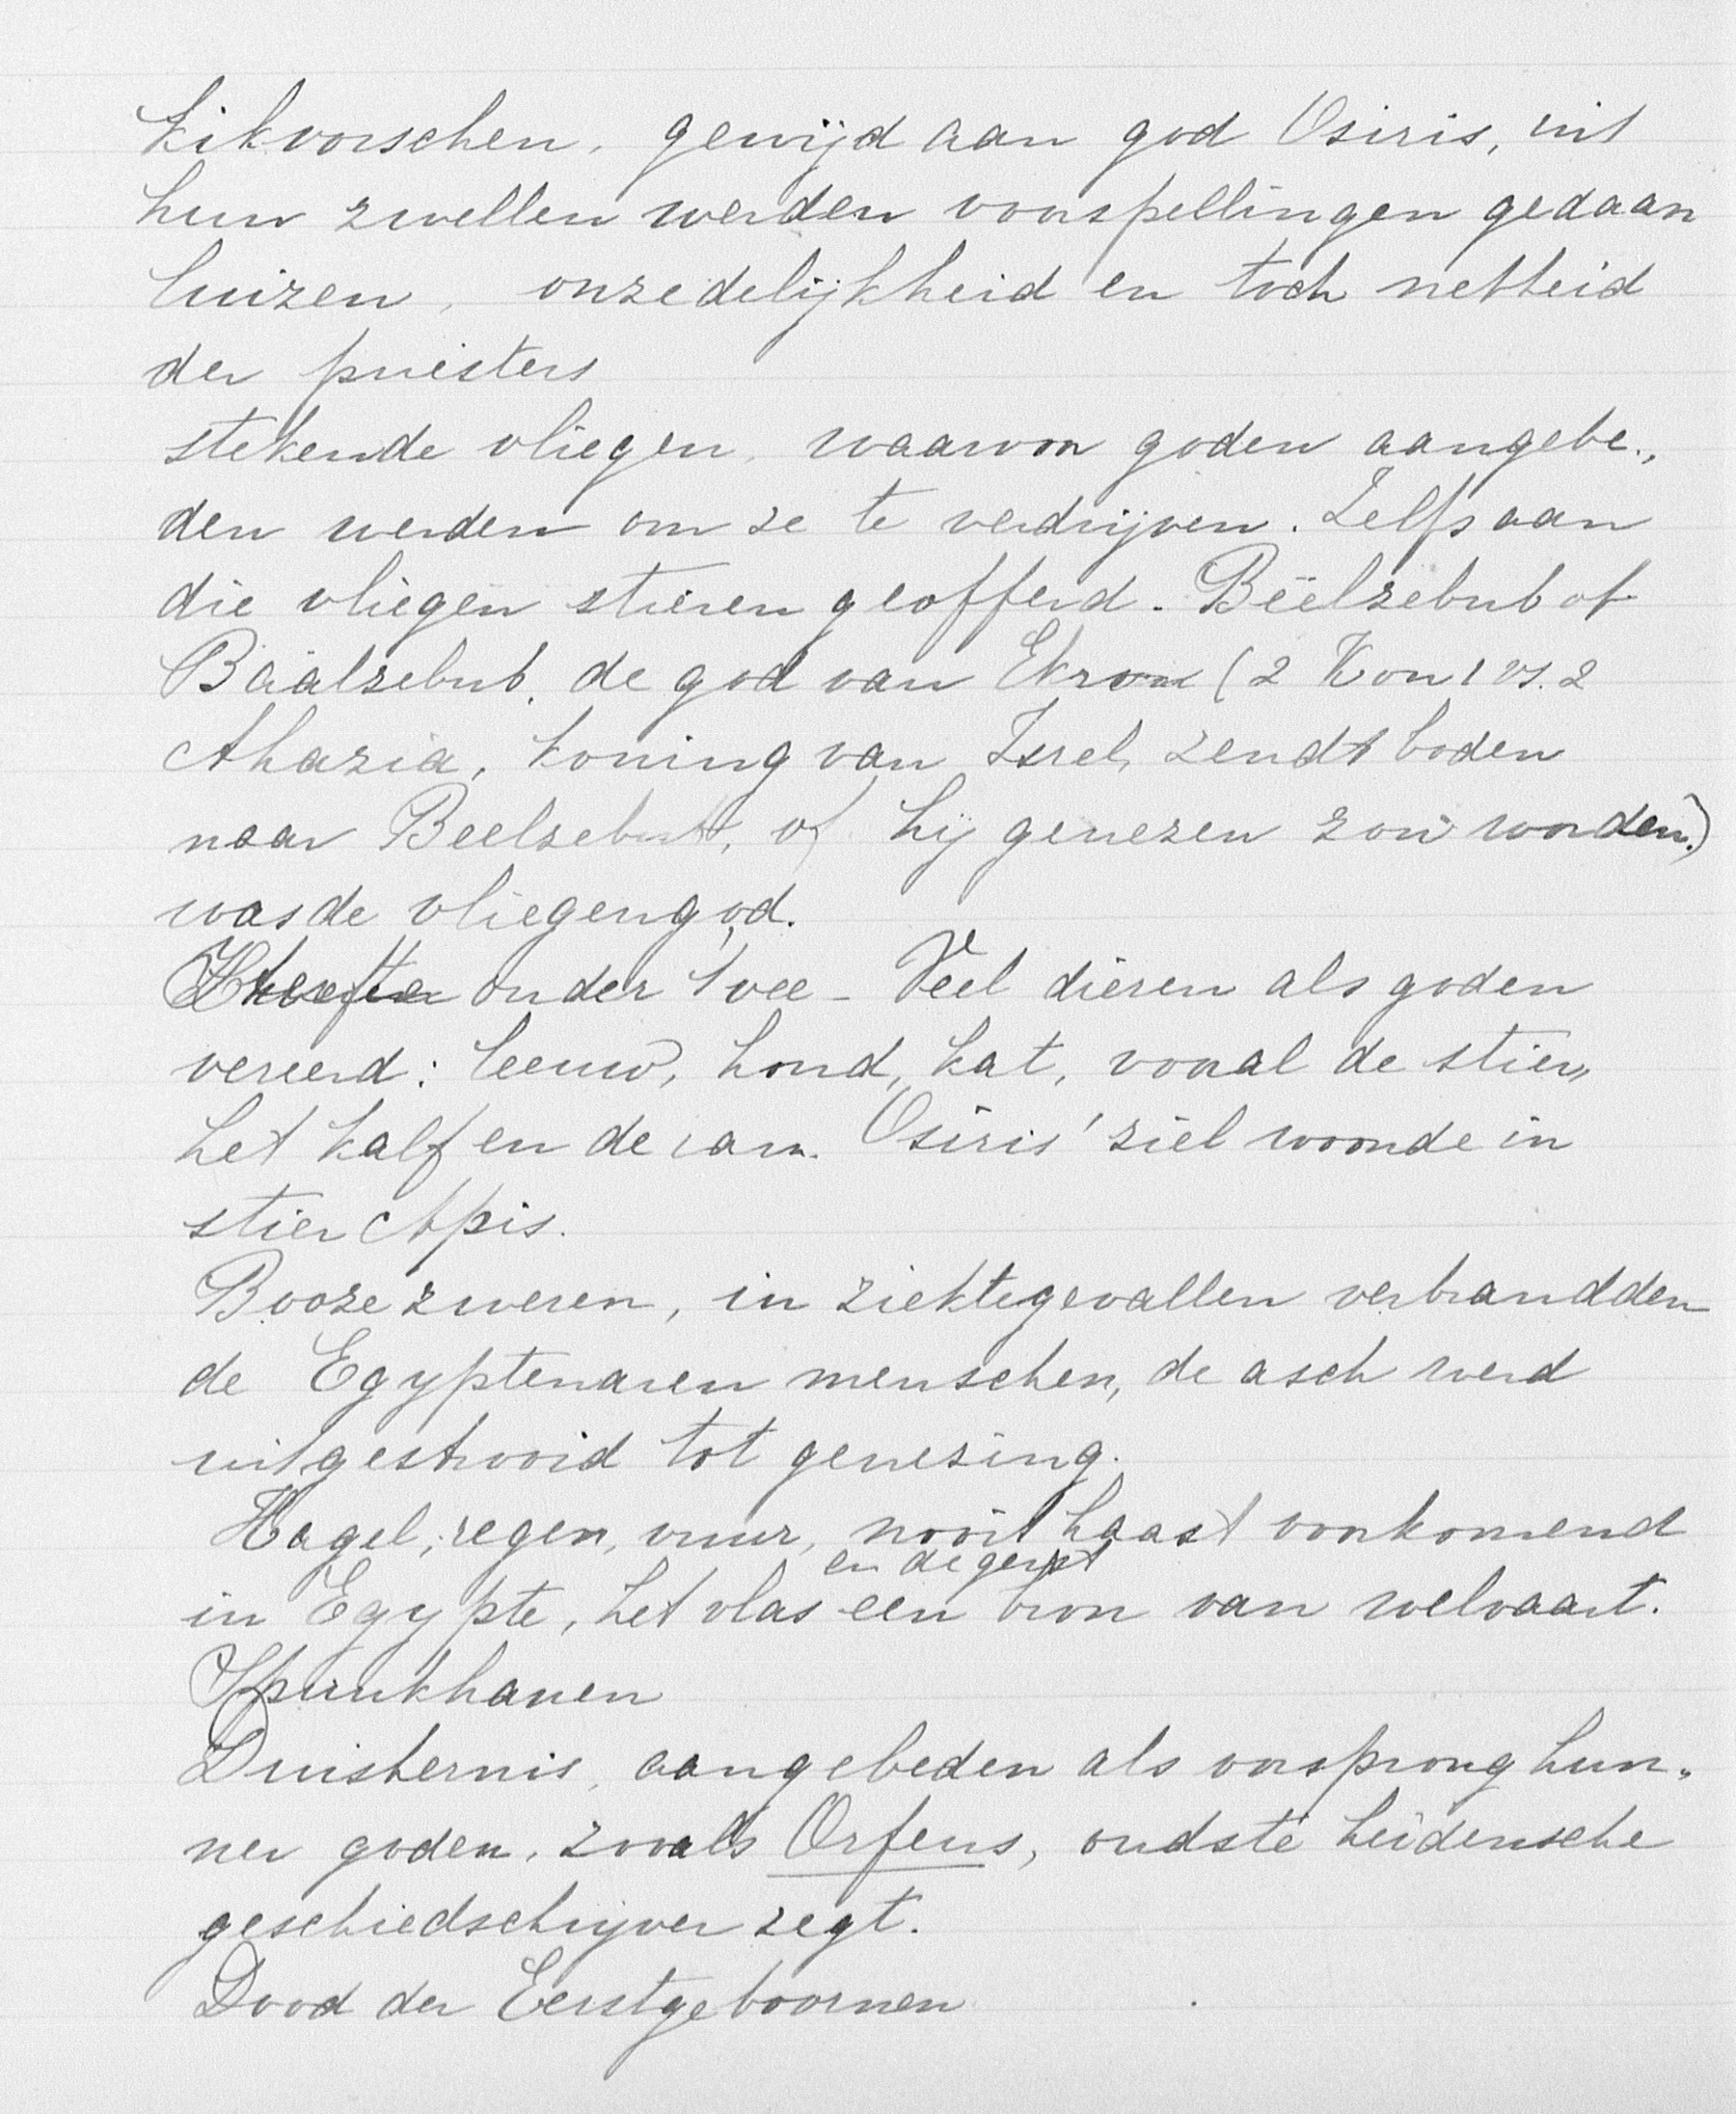 kikvorschen, gewijd aan god Osiris, uit
hun zwellen werden voorspellingen gedaan
luizen, onzedelijkheid en toch netheid
der priesters
stekende vliegen, waarvoor goden aangebe„
den werden om ze te verdrijven. Zelfs aan
die vliegen stieren geofferd. Beëlzebub of
Baälzebub, de god van Ekron (2 Kon 1 vs. 2
Ahazia, koning van Isrel, zendt boden
naar Beelzebub, of hij genezen zou worden.)
was de vliegengod.
onder 't vee - Veel dieren als goden
vereerd: leeuw, hond, kat, vooral de stier,
het kalf en de ram. Osiris' ziel woonde in
stier Apis.
Booze zweren, in ziektegevallen verbrandden
de Egyptenaren menschen, de asch werd
uitgestrooid tot genezing.
Hagel, regen, vuur, nooit haast voorkomend
en de gerst
in Egypte, het vlas een bron van welvaart.
Sprinkhanen
Duisternis, aangebeden als oorsprong hun„
ner goden, zooals Orfeus, oudste heidensche
geschiedschrijver zegt.
Dood der Eerstgeboornen